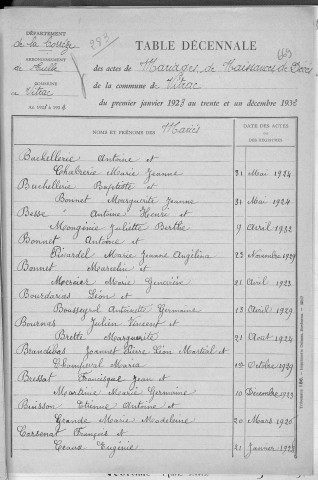 DÉPARTEMENT
de la Corrèze
ARRONDISSEMENT
de Tulle
COMMUNE
de Vitrac
TABLE DÉCENNALE
des actes de Mariages, de Naissances, de Décès
de la commune de Vitrac
du premier janvier 1923 au trente et un décembre 1932
NOMS ET PRÉNOMS DES Mariés
DATE DES ACTES
OU
DES REGISTRES
Bachellerie Antoine et
Chabrerie Marie Jeanne 31 Mai 1924
Bachellerie Baptiste et
Bonnet Marguerite Jeanne 31 Mai 1924
Besse Antoine Henri et
Mougenie Juliette Berthe 9 Avril 1932
Bonnet Antoine et
Ricardel Marie Jeanne Angélina 23 Novembre 1929
Bonnet Marcelin et
Marie Geneviève 21 Avril 1923
Bourdarias Léon et
Bousseyrol Antoinette Germaine 13 Avril 1929
Bournas Julien Vincent et
Brette Marguerite 21 Août 1924
Jeannet Pierre Léon Martial et
Champeval Maria Octobre 1929
Bressat Francisque Jean et
Martinie Marie Germaine 10 Décembre 1923
Buisson Etienne Antoine et
Grande Marie Madeleine 20 Mars 1926
Carsenat François et
Ceaux Eugénie 21 Janvier 1928